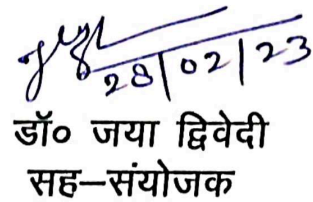 28/02/23
डॉ० जया द्विवेदी
सह–संयोजक